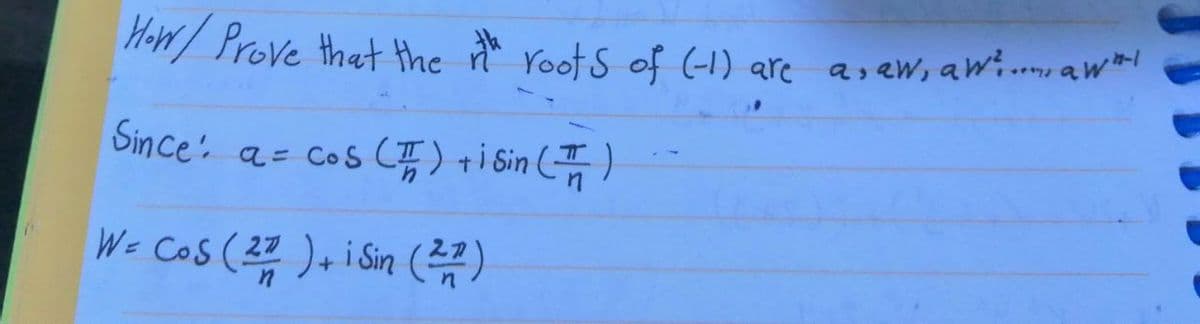 How/ Prove that the nth roots of (-1) are a, aw, aw², ...., awⁿ⁻¹
Since: a = cos (π/n) + i sin (π/n)
W = Cos (2π/n) + i Sin (2π/n)